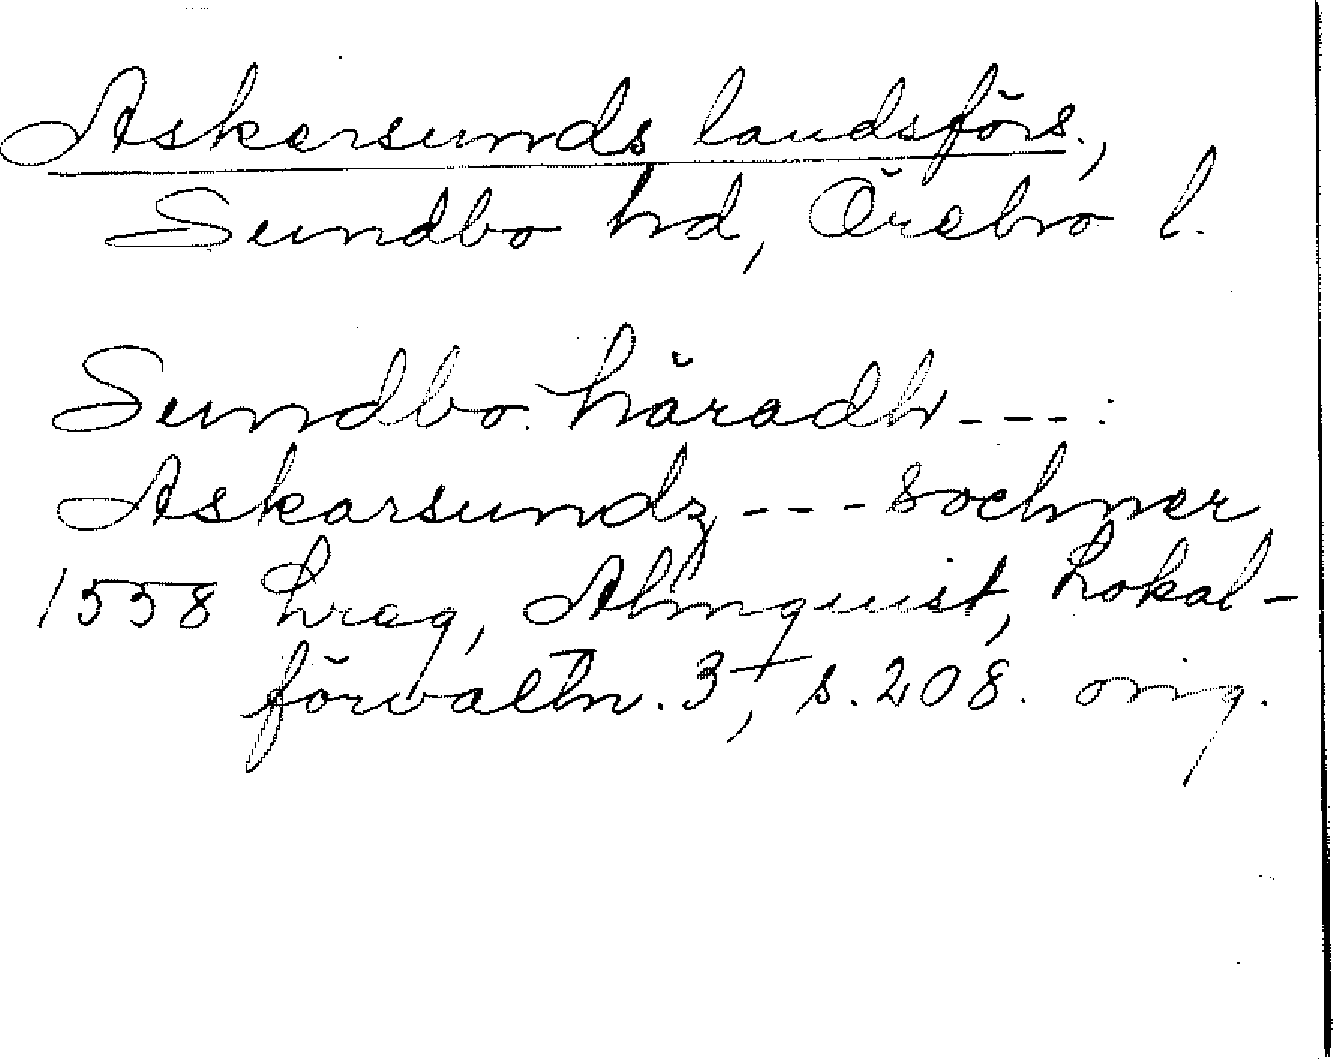 Askersunds landsförs.,
Sundbo hd, Örebro l.
Sundbo häradh - - - :
Askarsundz - - - sochner
1558 hreg, Almquist, Lokal-
förvaltn. 3, s. 208. orig.